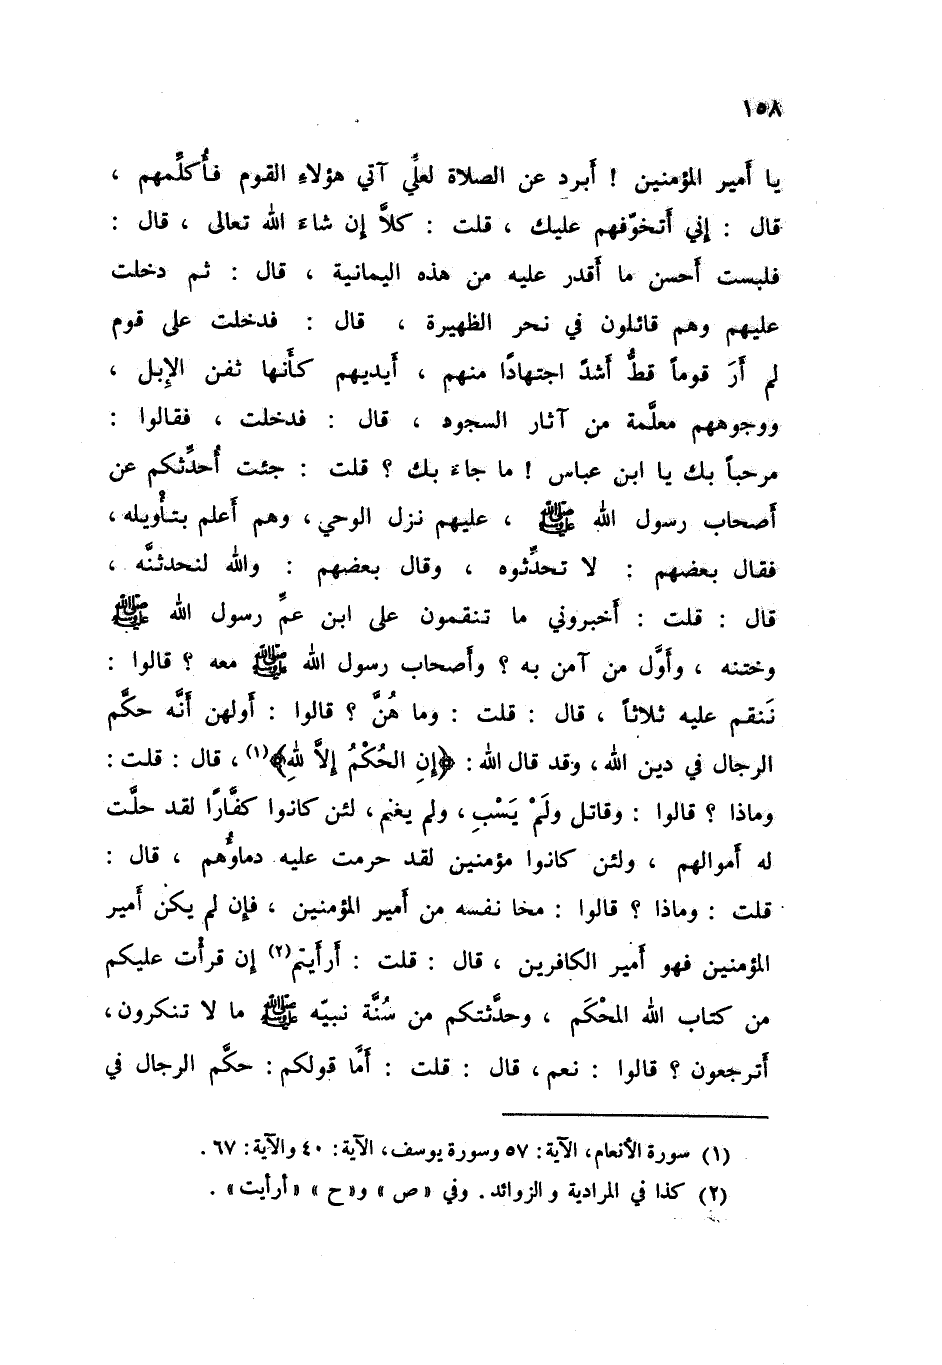 ١٥٨
يا أَمير المؤمنين ! أَبرد عن الصلاة لعلِّي آتي هؤلاءِ القوم فأُكلِّمهم ،
قال : إني أَتخوّفهم عليك ، قلت : كلاَّ إن شاءَ الله تعالى ، قال :
فلبست أَحسن ما أَقدر عليه من هذه اليمانية ، قال : ثم دخلت
عليهم وهم قائلون في نحر الظهيرة ، قال : فدخلت على قوم
لم أَرَ قوماً قطُّ أَشدّ اجتهادًا منهم ، أَيديهم كأَنها ثفن الإِبل ،
ووجوههم معلَّمة من آثار السجود ، قال : فدخلت ، فقالوا :
مرحباً بك يا ابن عباس ! ما جاءَ بك ؟ قلت : جئت أُحدِّثكم عن
أَصحاب رسول الله ﷺ ، عليهم نزل الوحي، وهم أَعلم بتأْويله،
فقال بعضهم : لا تحدِّثوه ، وقال بعضهم : والله لنحدثنَّه ،
قال : قلت : أَخبروني ما تنقمون على ابن عمِّ رسول الله ﷺ
وختنه ، وأَوَّل من آمن به ؟ وأَصحاب رسول الله ﷺ معه ؟ قالوا :
نَنقم عليه ثلاثاً ، قال : قلت : وما هُنَّ ؟ قالوا : أَولهن أَنَّه حكَّم
الرجال في دين الله، وقد قال الله : ﴿إِنِ الحُكْمُ إِلاَّ للهِ﴾(١)، قال : قلت :
وماذا ؟ قالوا : وقاتل ولَمْ يَسْبِ، ولم يغنم، لئن كانوا كفَّارًا لقد حلَّت
له أَموالهم ، ولئن كانوا مؤمنين لقد حرمت عليه دماؤُهم ، قال :
قلت : وماذا ؟ قالوا : محا نفسه من أَمير المؤمنين ، فإِن لم يكن أَمير
المؤمنين فهو أَمير الكافرين ، قال : قلت : أَرأَيتم(٢) إن قرأْت عليكم
من كتاب الله المحْكَم ، وحدَّثتكم من سُنَّة نبيّه ﷺ ما لا تنكرون،
أَترجعون ؟ قالوا : نعم، قال : قلت : أَمَّا قولكم: حكَّم الرجال في
(١) سورة الأنعام، الآية: ٥٧ وسورة يوسف، الآية: ٤٠ والآية: ٦٧.
(٢) كذا في المرادية و الزوائد. وفي «ص» و«ح» «أرأيت».